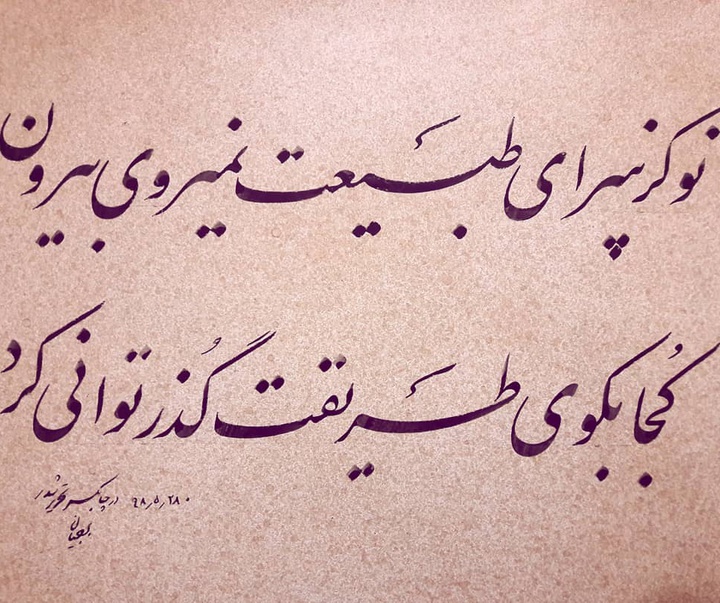 تو کز سرای طبیعت نمیروی بیرون
کجا بکوی طریقت گذر توانی کرد
۹۸٫۵٫۲۸ در چابکسر تحریر شد